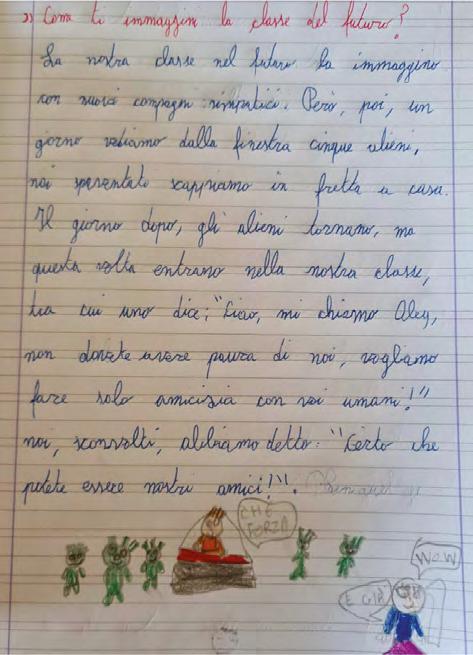 Come ti immagini la classe del futuro?
La nostra classe nel futuro la immagino
con nuovi compagni simpatici. Però, poi, un
giorno vediamo dalla finestra cinque alieni,
noi spaventate scappiamo in fretta a casa.
Il giorno dopo, gli alieni tornano, ma
questa volta entrano nella nostra classe,
tra cui uno dice: "Ciao, mi chiamo Oley,
non dovete avere paura di noi, vogliamo
fare solo amicizia con voi umani!"
noi, sconvolti, abbiamo detto: "Certo che
potete essere nostri amici!".
CHE
FORZA
WOW
E GIÀ